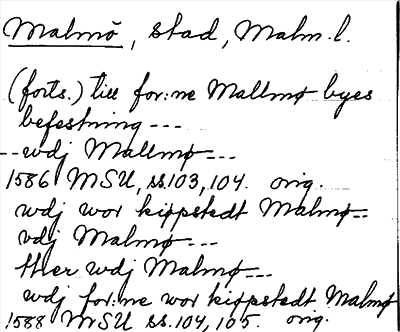 Malmö, stad, Malm.l.
(forts.) till for:ne Mallmø byes
befestning ---
-- wdj Mallmø ---
1586 MSU, ss. 103, 104. orig.
wdj wor kiøpstedt Malmø --
vdj Malmø ---
Her wdj Malmø ---
wdj for:ne wor kiøpstedt Malmø
1588 MSU ss. 104, 105. orig.